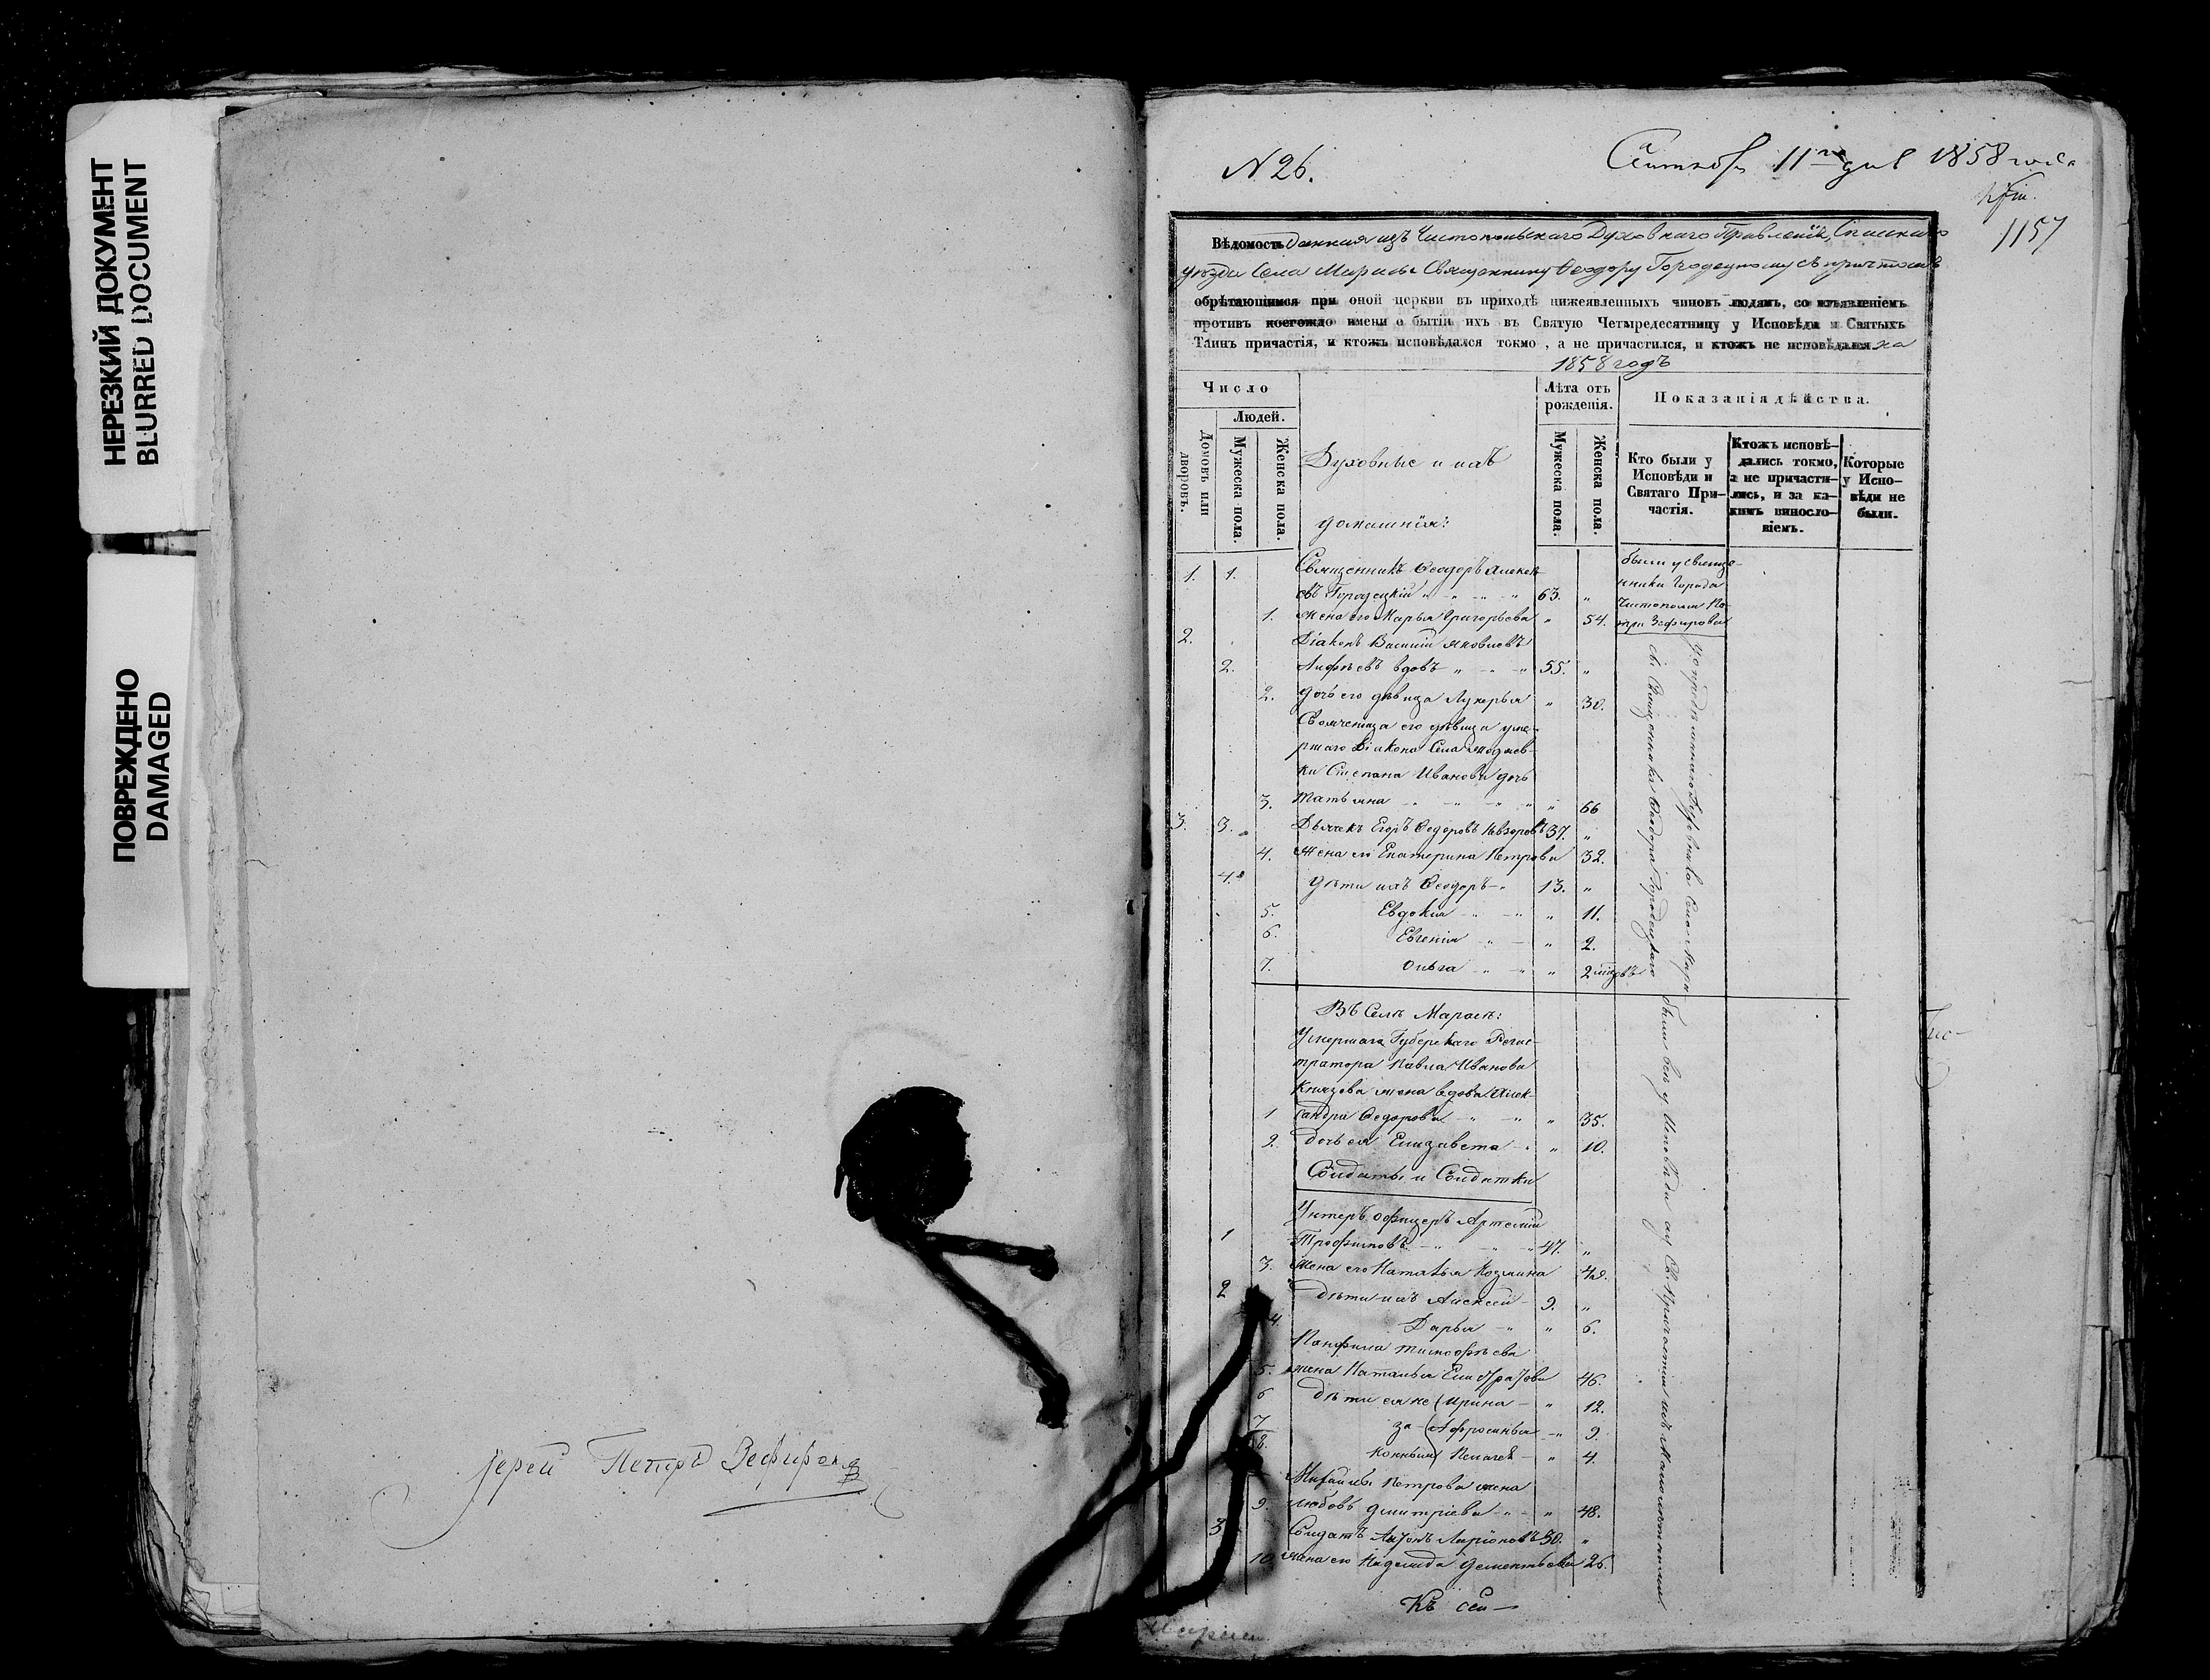 НЕРЕЗКИЙ ДОКУМЕНТ
BLURRED DOCUMENT
ПОВРЕЖДЕНО
DAMAGED
Іерей Петръ Зефировъ
N 26.
11го дня 1858 года
1157
Вѣдомость данная изъ Чистопольскаго Духовнаго Правленія, Спаскаго
уѣзда села Марасы Священнику Ѳеодору Городецкому съ причтомъ
обрѣтающимся при оной церкви въ приходѣ нижеявленныхъ чиновъ людямъ, со изъявленіемъ
противъ коегождо имени о бытіи ихъ въ Святую Четыредесятницу у Исповѣди и Святыхъ
Таинъ причастія, и ктожъ исповѣдался токмо, а не причастился, и ктожъ не исповѣдался на
1858 годъ
Число
Людей.
Домовъ или дворовъ.
Мужеска пола.
Женска пола.
Духовные и ихъ
домашнія:
Лѣта отъ
рожденія.
Мужеска пола.
Женска пола.
Показанія дѣйства.
Кто были у
Исповѣди и
Святаго При-
частія.
Ктожъ исповѣ-
дались токмо,
а не причасти-
лись, и за ка-
кимъ винosло-
віемъ.
Которые
у Испо-
вѣди не
были.
1. 1. Священникъ Ѳеодоръ Алексѣ-
евъ Городецкій 63. "
1. Жена его Марья Григорьева " 54.
были у священ-
ника города
Чистополя Пе-
тра Зефирова
2. Діаконъ Василій Яковлевъ
2. вдовъ 55. "
2. Дочь его дѣвица Лукерья " 30.
Своячница его дѣвица уме-
ршаго Діакона Села
Степана Иванова дочь
3. Татьяна " 66
3. 3. Дьячекъ Егоръ Ѳедоровъ Невзоровъ 37. "
4. Жена его Екатерина Петрова 32.
4. Дѣти ихъ Ѳеодоръ 13. "
5. Евдокія " 11.
6. Евгенія " 2.
7. Ольга " 2
Священника Ѳеодора Городецкаго
Въ Селѣ Марасѣ:
Умершаго Губерскаго Регис-
тратора Павла Иванова
Князева жена вдова Алек-
1 сандра Ѳедорова " 35.
2. Дочь ея Елизавета " 10.
Солдаты и Солдатки
Унтеръ офицеръ Артемій
1 Трофимовъ 47. "
3. Жена его Наталья Козмина
2 Дѣти ихъ Алексѣй 9. "
4. Дарья " 6.
Панфила Тимофѣева
5. жена Наталья 46.
6 Дѣти ея не (Ирина " 12.
7 за (Афросинья " 9.
8. конныя 4.
Михайлы Петрова жена
9. Любовь Дмитріева " 48.
3 Солдатъ Ларіоновъ 30. "
10 Жена его Надежда Дементьева 26.
были всѣ у Исповѣди и Св. Причастія
Къ сей